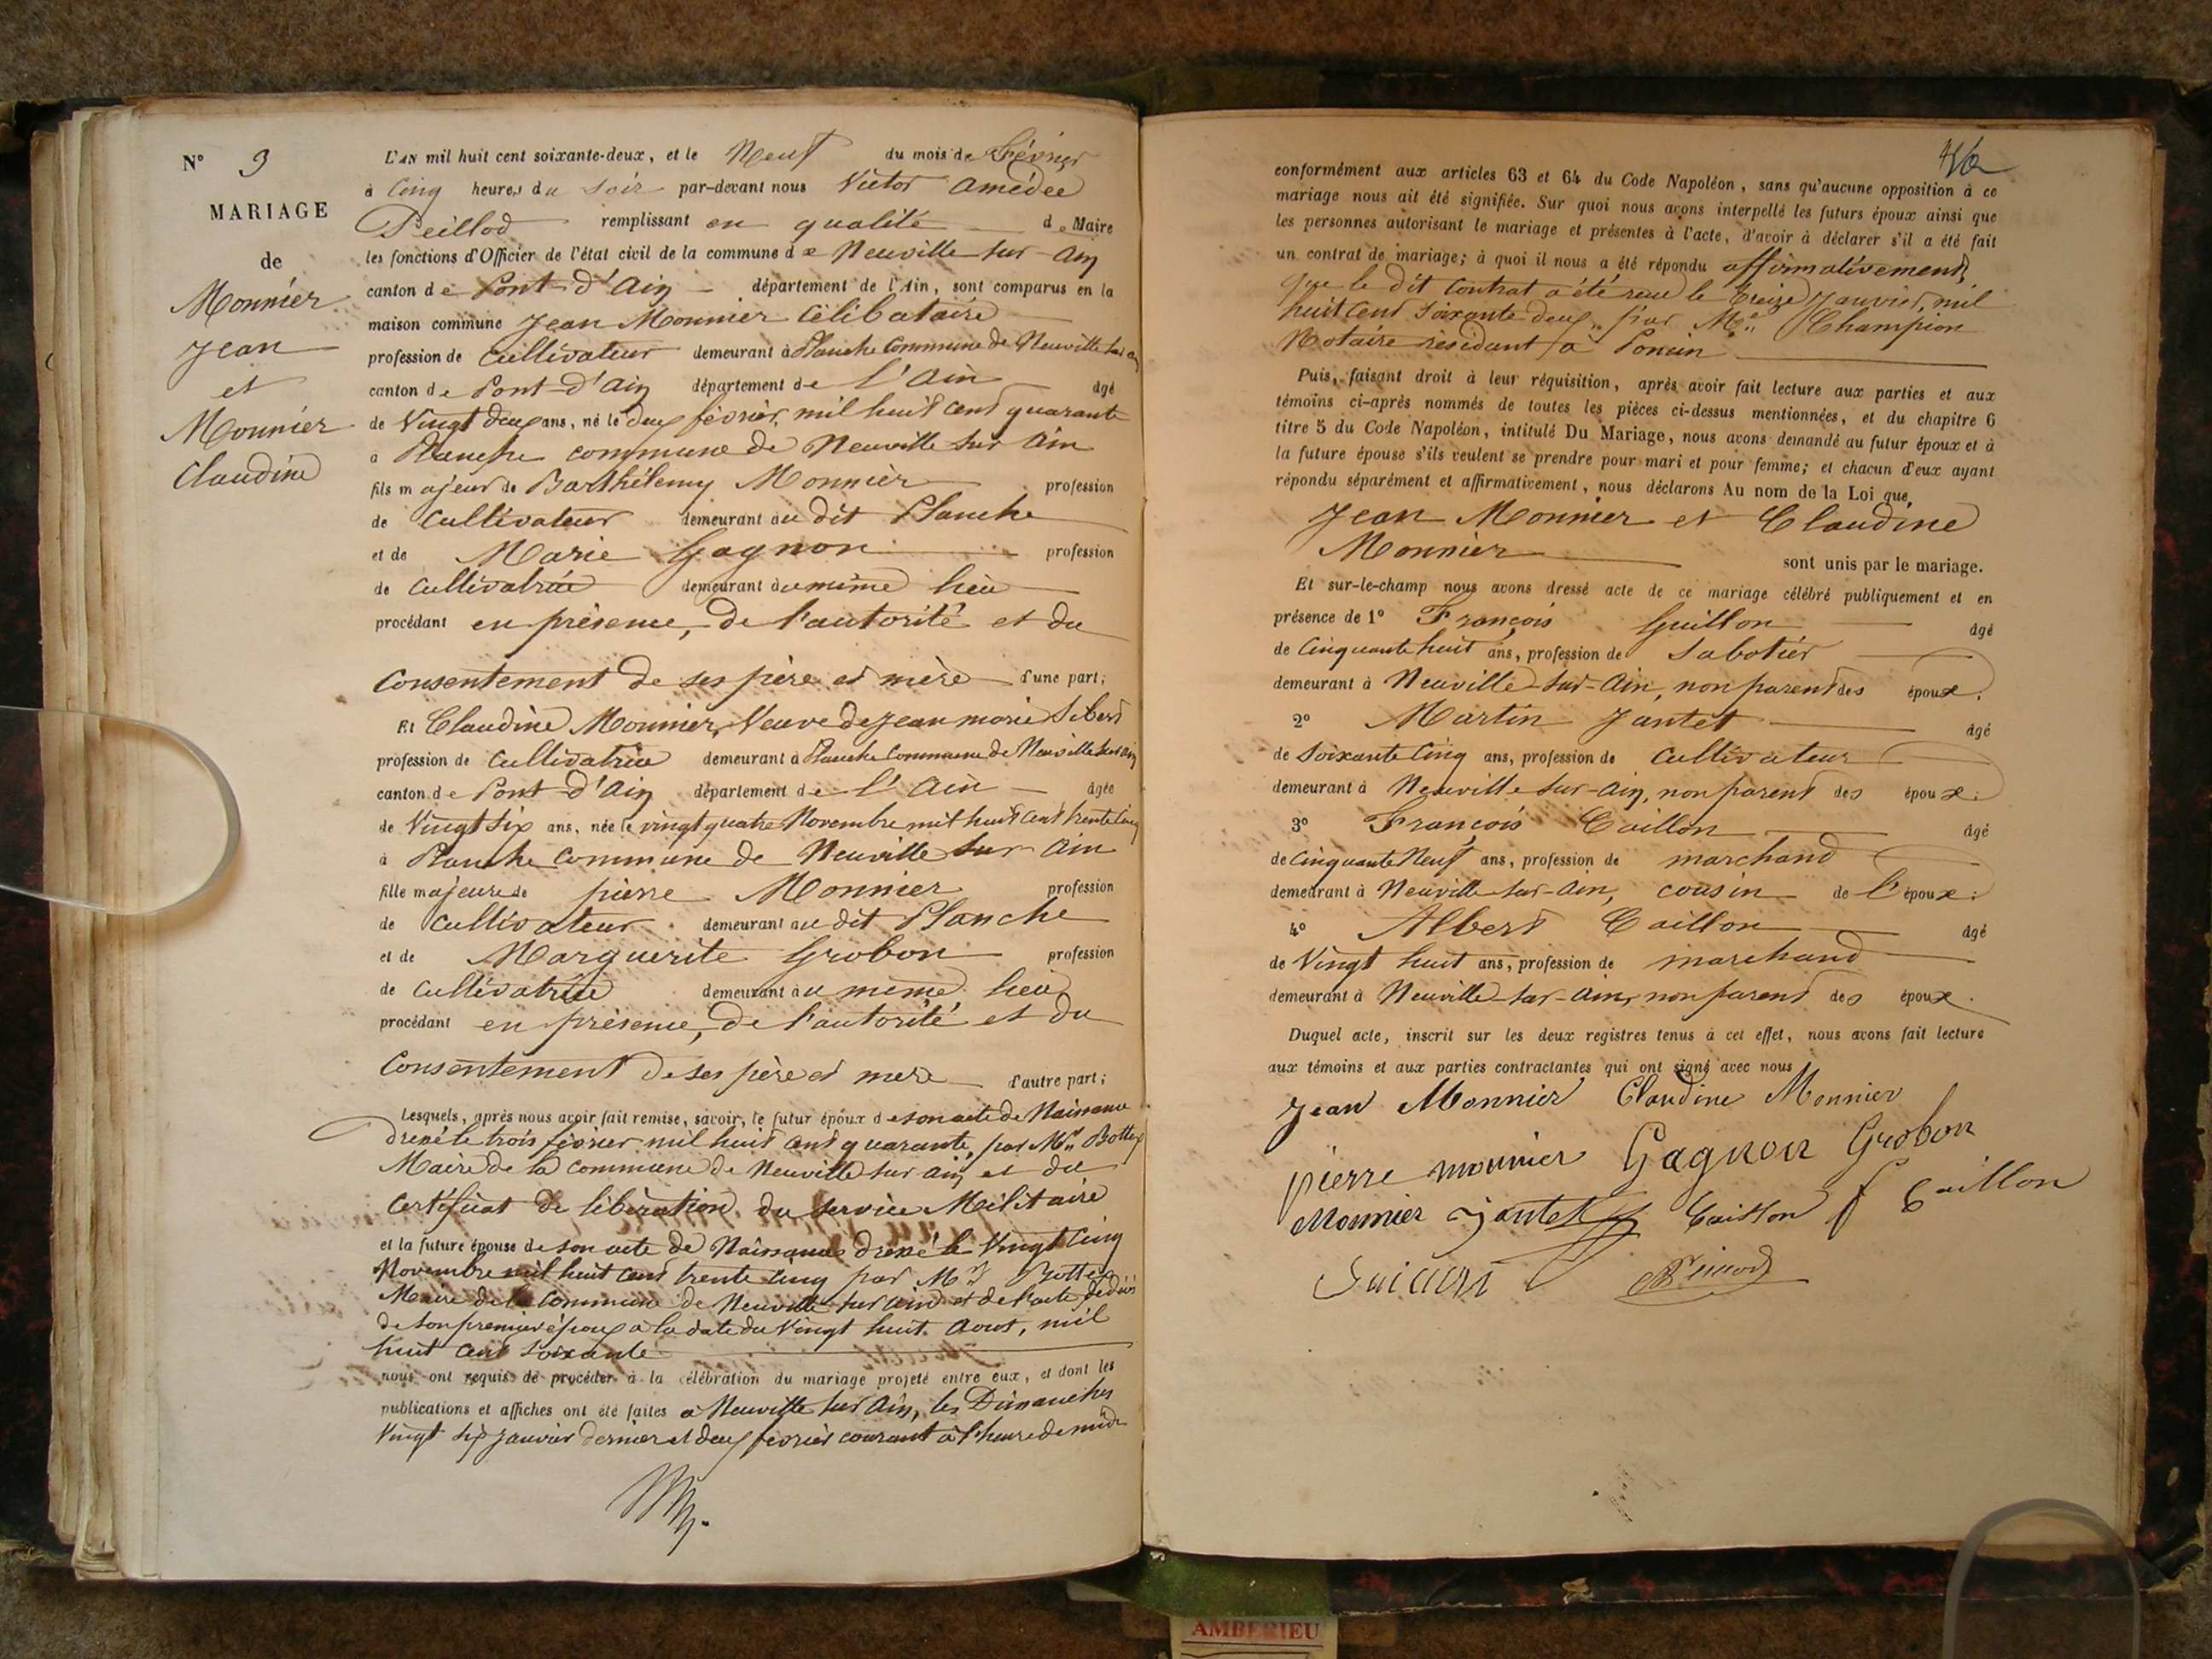 N° 3
MARIAGE
de
Monnier
Jean
et
Monnier
Claudine
L'AN mil huit cent soixante-deux, et le Neuf du mois de Février
à Cinq heures du soir par-devant nous Victor Amédée
Peillod remplissant en qualité de Maire
les fonctions d'Officier de l'état civil de la commune de Neuville sur Ain
canton de Pont-d'Ain département de l'Ain, sont comparus en la
maison commune Jean Monnier Célibataire
profession de Cultivateur demeurant à Planche Commune de Neuville sur Ain
canton de Pont-d'Ain département de l'Ain âgé
de Vingt deux ans, né le deux février, mil huit cent quarante
à Planche commune de Neuville sur Ain
fils majeur de Barthélemy Monnier profession
de Cultivateur demeurant au dit Planche
et de Marie Gagnon profession
de Cultivatrice demeurant au même lieu
procédant en présence, de l'autorité et du
Consentement de ses père et mère d'une part;
Et Claudine Monnier, Veuve de Jean marie Sibert
profession de Cultivatrice demeurant à Planche Commune de Neuville sur Ain
canton de Pont-d'Ain département de l'Ain âgée
de Vingt Six ans, née le vingt quatre Novembre mil huit cent trente cinq
à Planche Commune de Neuville sur Ain
fille majeure de pierre Monnier profession
de Cultivateur demeurant au dit Planche
et de Marguerite Grobon profession
de Cultivatrice demeurant au même lieu
procédant en présence, de l'autorité et du
Consentement de ses père et mère d'autre part;
Lesquels, après nous avoir fait remise, savoir, le futur époux de son acte de Naissance
dressé le trois février mil huit cent quarante, par Mr Bottex
Maire de la Commune de Neuville sur Ain et du
Certificat de libération du service Militaire
et la future épouse de son acte de Naissance dressé le Vingt Cinq
Novembre mil huit cent trente cinq par Mr Bottex
Maire de la Commune de Neuville sur Ain et de l'acte de décès
de son premier époux à la date du Vingt huit Aout, mil
huit cent soixante
nous ont requis de procéder à la célébration du mariage projeté entre eux, et dont les
publications et affiches ont été faites à Neuville sur Ain, les Dimanches
Vingt six janvier dernier et deux février courant à l'heure de midi
conformément aux articles 63 et 64 du Code Napoléon, sans qu'aucune opposition à ce
mariage nous ait été signifiée. Sur quoi nous avons interpellé les futurs époux ainsi que
les personnes autorisant le mariage et présentes à l'acte, d'avoir à déclarer s'il a été fait
un contrat de mariage; à quoi il nous a été répondu affirmativement,
que le dit Contrat a été reçu le treize Janvier, mil
huit Cent Soixante deux, par Me Champion
Notaire résidant à Poncin
Puis, faisant droit à leur réquisition, après avoir fait lecture aux parties et aux
témoins ci-après nommés de toutes les pièces ci-dessus mentionnées, et du chapitre 6
titre 5 du Code Napoléon, intitulé Du Mariage, nous avons demandé au futur époux et à
la future épouse s'ils veulent se prendre pour mari et pour femme; et chacun d'eux ayant
répondu séparément et affirmativement, nous déclarons Au nom de la Loi que
Jean Monnier et Claudine
Monnier sont unis par le mariage.
Et sur-le-champ nous avons dressé acte de ce mariage célébré publiquement et en
présence de 1° François Guillon âgé
de Cinquante huit ans, profession de Sabotier
demeurant à Neuville-sur-Ain, non parent des époux.
2° Martin Jantet âgé
de Soixante Cinq ans, profession de Cultivateur
demeurant à Neuville sur-Ain, non parent des époux.
3° François Caillon âgé
de Cinquante Neuf ans, profession de marchand
demeurant à Neuville sur-Ain, cousin de l'époux.
4° Albert Caillon âgé
de Vingt huit ans, profession de marchand
demeurant à Neuville sur-Ain, non parent des époux.
Duquel acte, inscrit sur les deux registres tenus à cet effet, nous avons fait lecture
aux témoins et aux parties contractantes qui ont signé avec nous
Jean Monnier Claudine Monnier
pierre monnier Gagnon Grobon
Monnier Jantet Caillon f Caillon
AMBERIEU